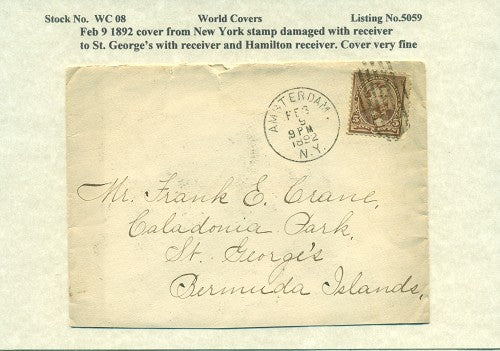 Stock No. WC 08 World Covers Listing No.5059
Feb 9 1892 cover from New York stamp damaged with receiver
to St. George's with receiver and Hamilton receiver. Cover very fine
AMSTERDAM,
FEB
9
9 PM
1892
N.Y.
5 5
Mr. Frank E. Crane,
Caladonia Park,
St. George's
Bermuda Islands,